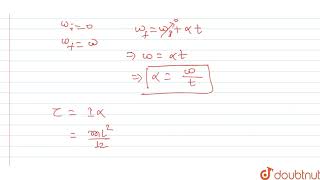 ωᵢ = 0
ω_f = ω
ω_f = ω_i⁰ + αt
⇒ ω = αt
⇒ α = ω/t
τ = Iα
= ml²/12
doubtnut